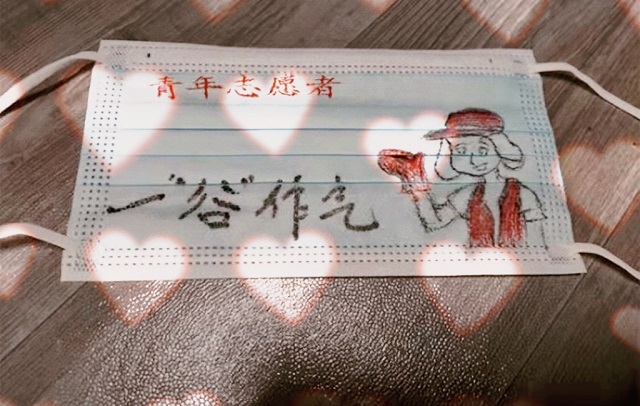 青年志愿者
一"谷"作气